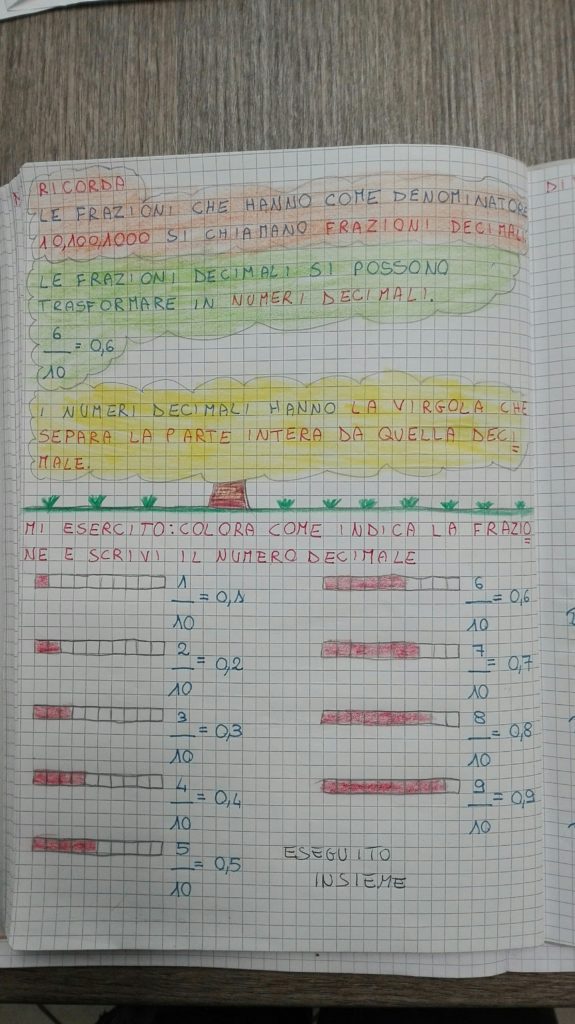 RICORDA
LE FRAZIONI CHE HANNO COME DENOMINATORE
10,100,1000 SI CHIAMANO FRAZIONI DECIMALI
LE FRAZIONI DECIMALI SI POSSONO
TRASFORMARE IN NUMERI DECIMALI.
6/10 = 0,6
I NUMERI DECIMALI HANNO LA VIRGOLA CHE
SEPARA LA PARTE INTERA DA QUELLA DECI=
MALE.
MI ESERCITO: COLORA COME INDICA LA FRAZIO=
NE E SCRIVI IL NUMERO DECIMALE
1/10 = 0,1
2/10 = 0,2
3/10 = 0,3
4/10 = 0,4
5/10 = 0,5
6/10 = 0,6
7/10 = 0,7
8/10 = 0,8
9/10 = 0,9
ESEGUITO
INSIEME